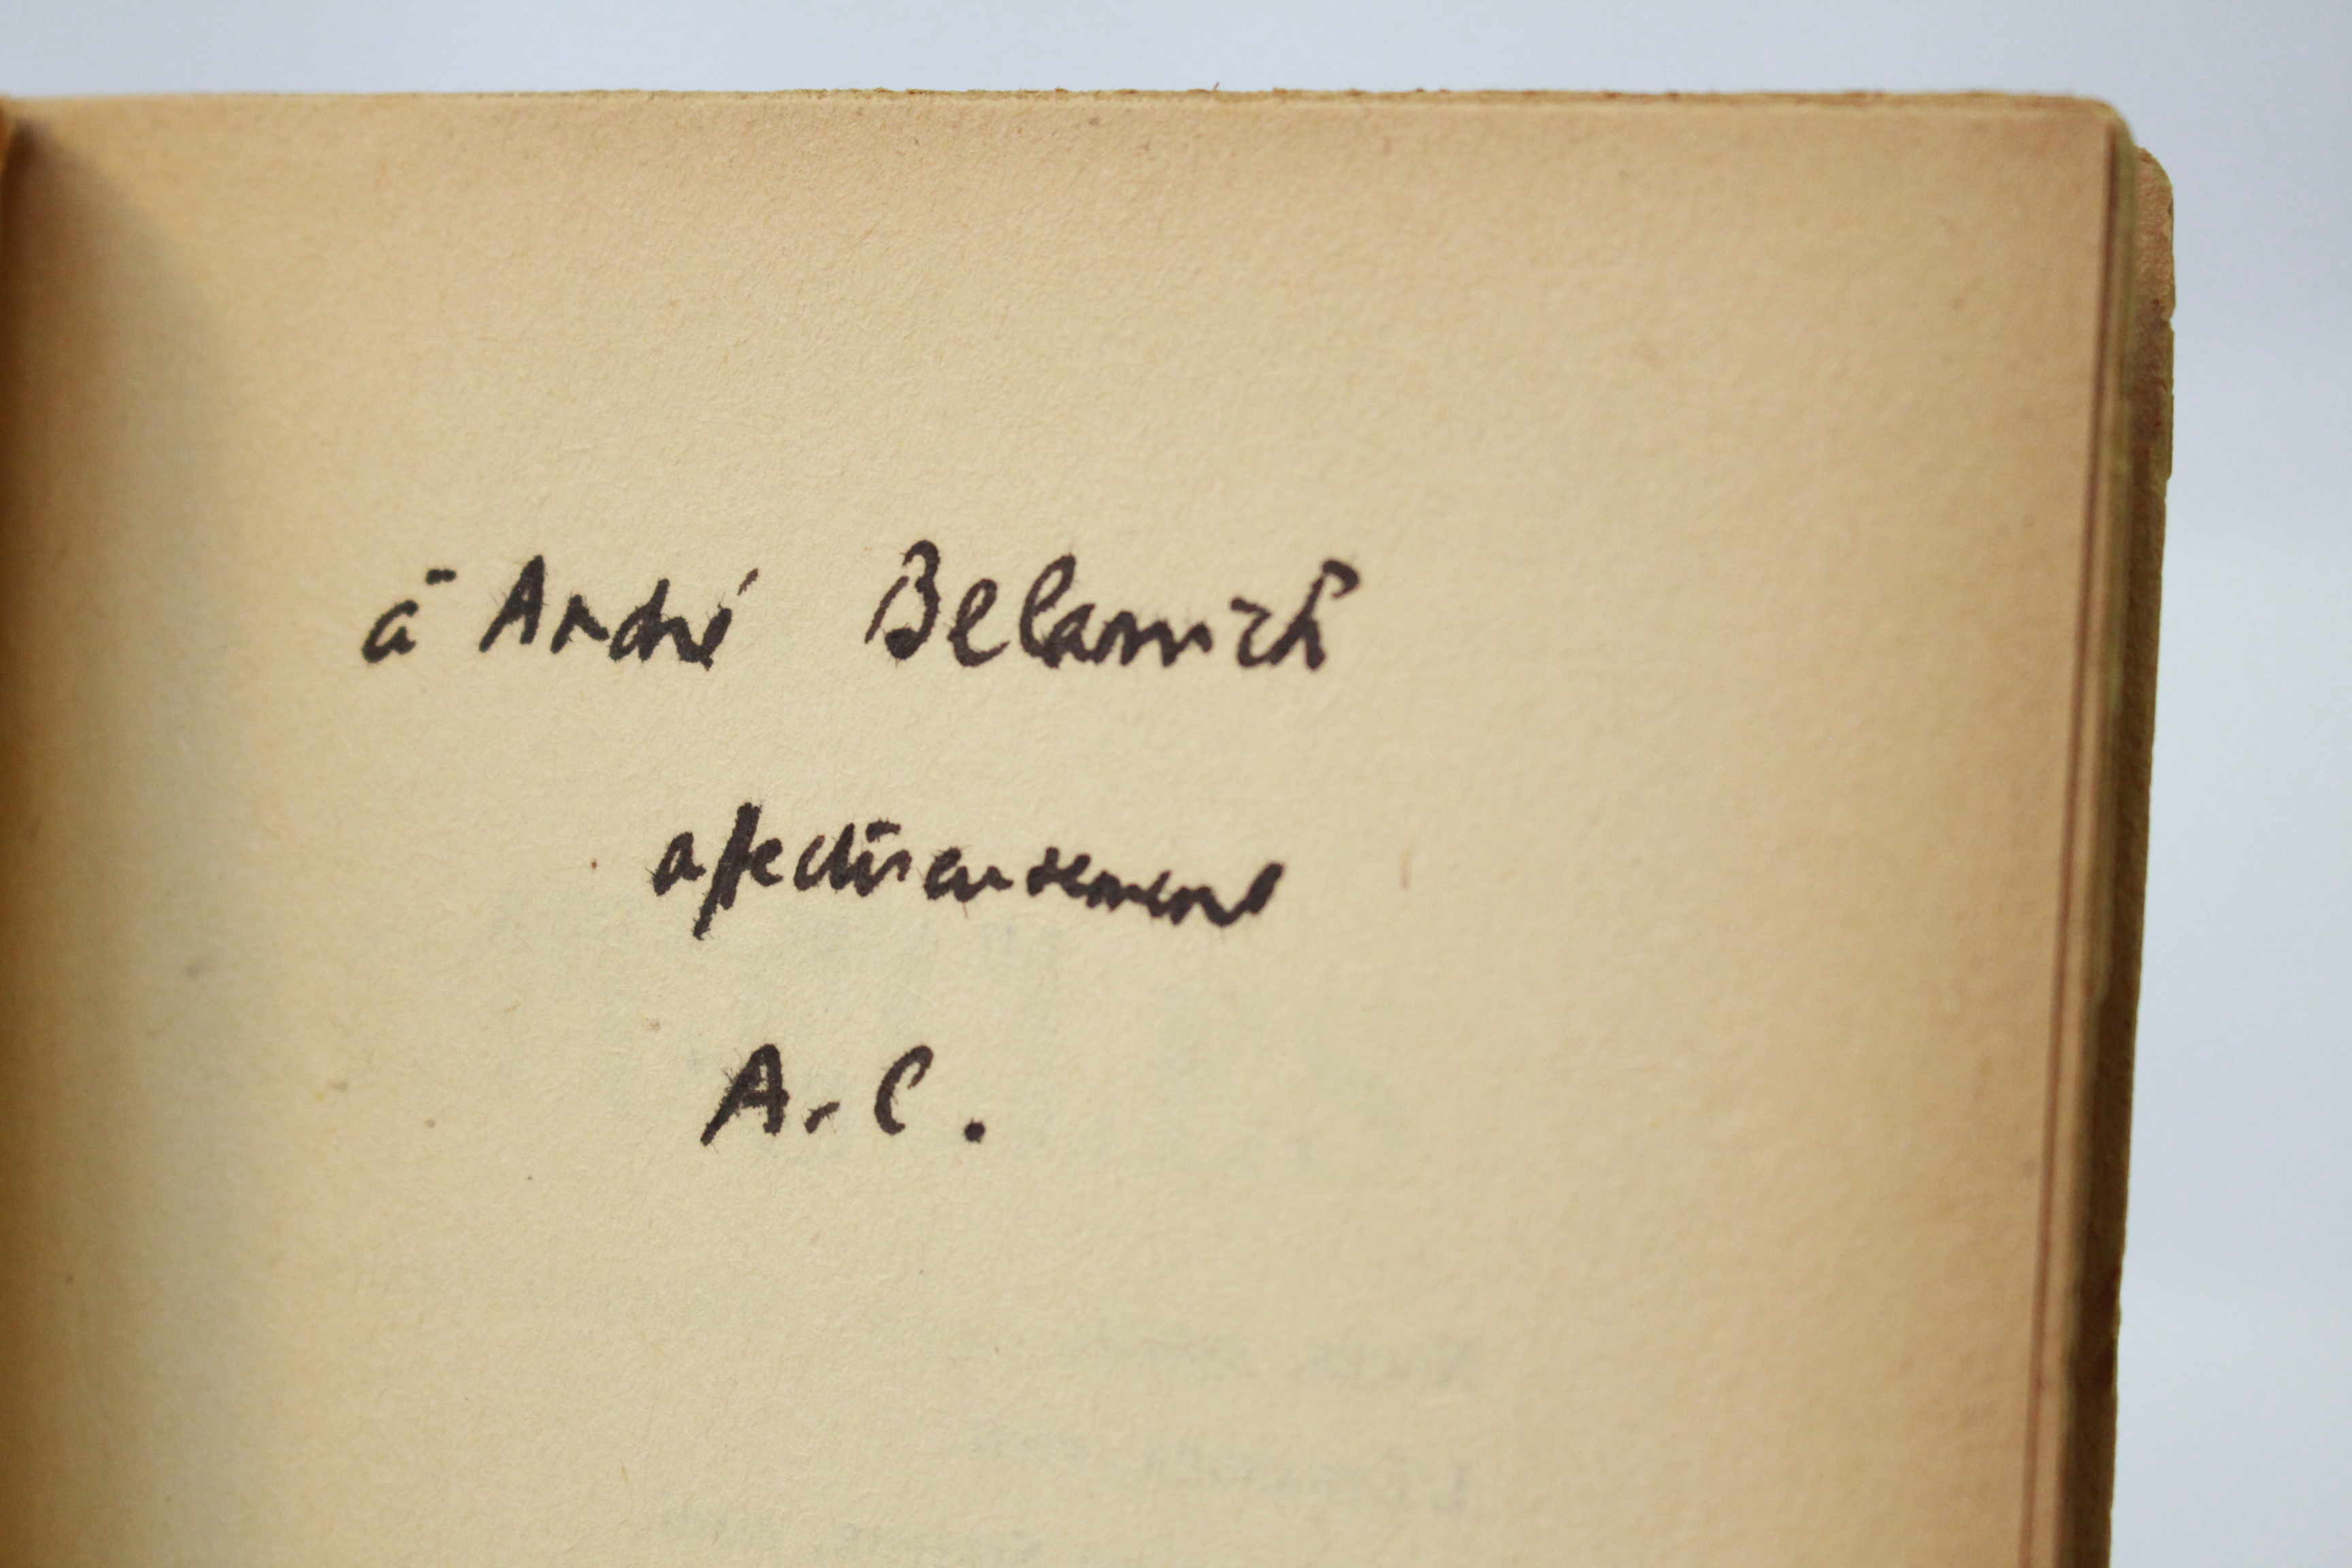 à André Belamich
affectueusement
A. C.